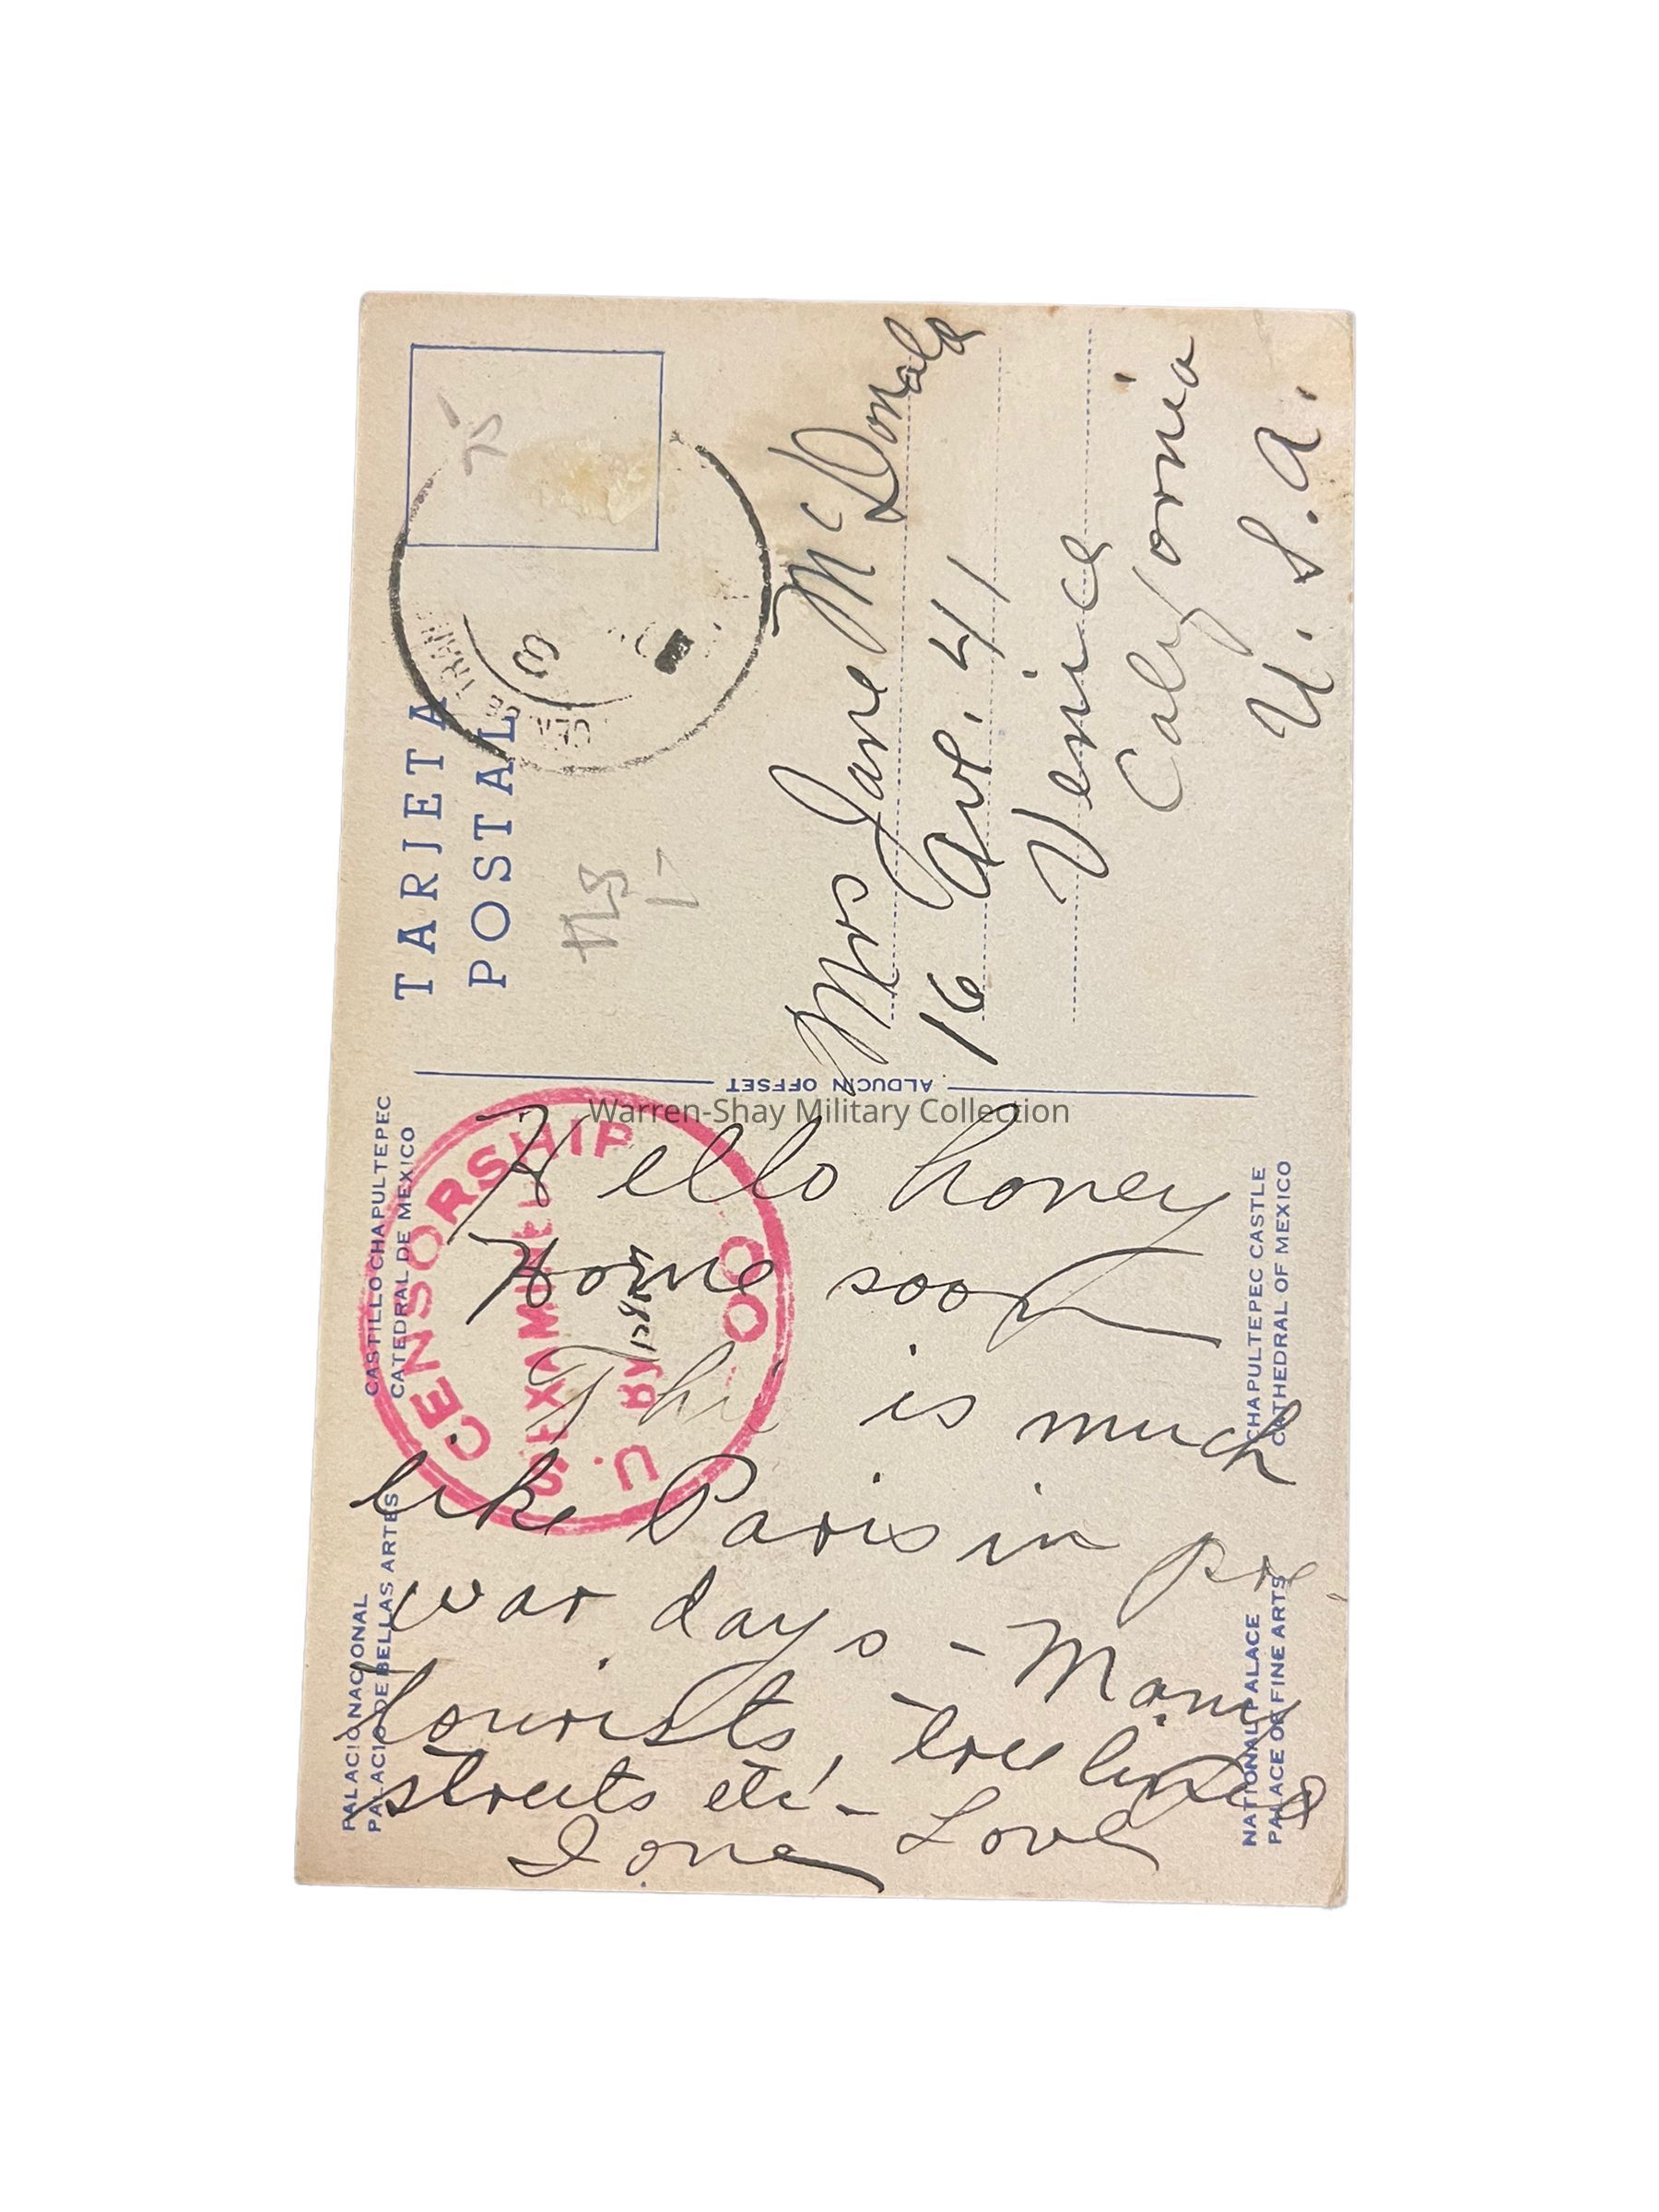 TARJETA
POSTAL
Mrs Jane McDonald
16 Ave. 41
Venice
California
U. S. A.
ALDUCIN OFFSET
Warren-Shay Military Collection
CASTILLO CHAPULTEPEC
CATEDRAL DE MEXICO
PALACIO NACIONAL
PALACIO DE BELLAS ARTES
CENSORSHIP
EXAMINED
BY
Hello honey
Home soon
This is much
like Paris in pre-
war days - Many
tourists, tree lined
streets etc -
Love
Ione
CHAPULTEPEC CASTLE
CATHEDRAL OF MEXICO
NATIONAL PALACE
PALACE OF FINE ARTS